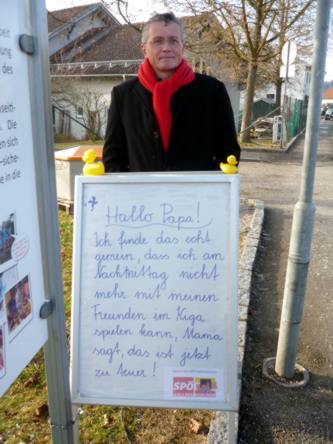 Hallo Papa!
Ich finde das echt
gemein, dass ich am
Nachmittag nicht
mehr mit meinen
Freunden im Kiga
spielen kann, Mama
sagt, das ist jetzt
zu teuer!
SPÖ